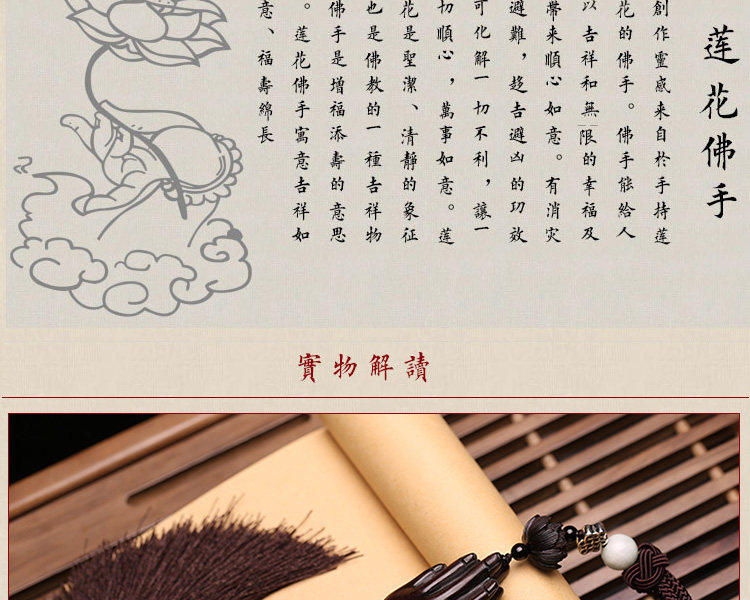 莲花佛手
創作靈感来自於手持莲
花的佛手。佛手能給人
以吉祥和無限的幸福及
帶来順心如意。有消灾
避難，趋吉避凶的功效
可化解一切不利，讓一
切順心，萬事如意。莲
花是聖潔、清静的象征
也是佛教的一種吉祥物
佛手是增福添壽的意思
。莲花佛手寓意吉祥如
意、福壽綿長
實物解讀